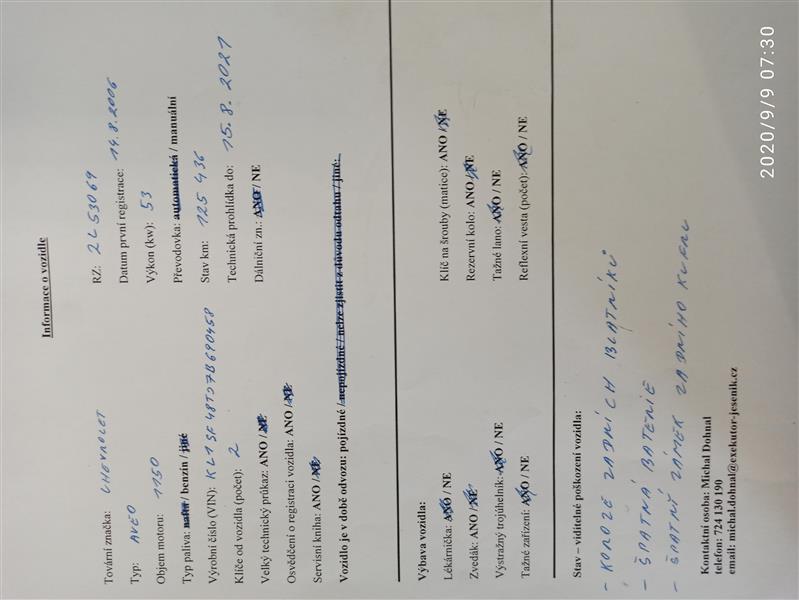 Informace o vozidle
Tovární značka: CHEVROLET RZ: 2L53069
Typ: AVEO Datum první registrace: 14.8.2006
Objem motoru: 1150 Výkon (kw): 53
Typ paliva: nafta / benzín / jiné Převodovka: automatická / manuální
Výrobní číslo (VIN): KL1SF48TD7B690458 Stav km: 125 436
Klíče od vozidla (počet): 2 Technická prohlídka do: 15.8.2021
Velký technický průkaz: ANO / NE Dálniční zn.: ANO / NE
Osvědčení o registraci vozidla: ANO / NE
Servisní kniha: ANO / NE
Vozidlo je v době odvozu: pojízdné / nepojízdné / nelze zjistit z důvodu odtahu / jiné:
Výbava vozidla:
Lékárnička: ANO / NE Klíč na šrouby (matice): ANO / NE
Zvedák: ANO / NE Rezervní kolo: ANO / NE
Výstražný trojúhelník: ANO / NE Tažné lano: ANO / NE
Tažné zařízení: ANO / NE Reflexní vesta (počet): ANO / NE
Stav – viditelné poškození vozidla:
- KOROZE ZADNÍCH BLATNÍKŮ
- ŠPATNÁ BATERIE
- ŠPATNÝ ZÁMEK ZADNÍHO KUFRU
Kontaktní osoba: Michal Dohnal
telefon: 724 130 190
email: michal.dohnal@exekutor-jesenik.cz
2020/9/9 07:30